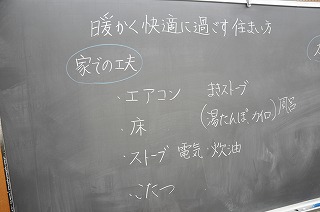 暖かく快適に過ごす住まい方
家での工夫
・エアコン まきストーブ
・床 (湯たんぽ・カイロ) 風呂
・ストーブ 電気・炊油
・こたつ